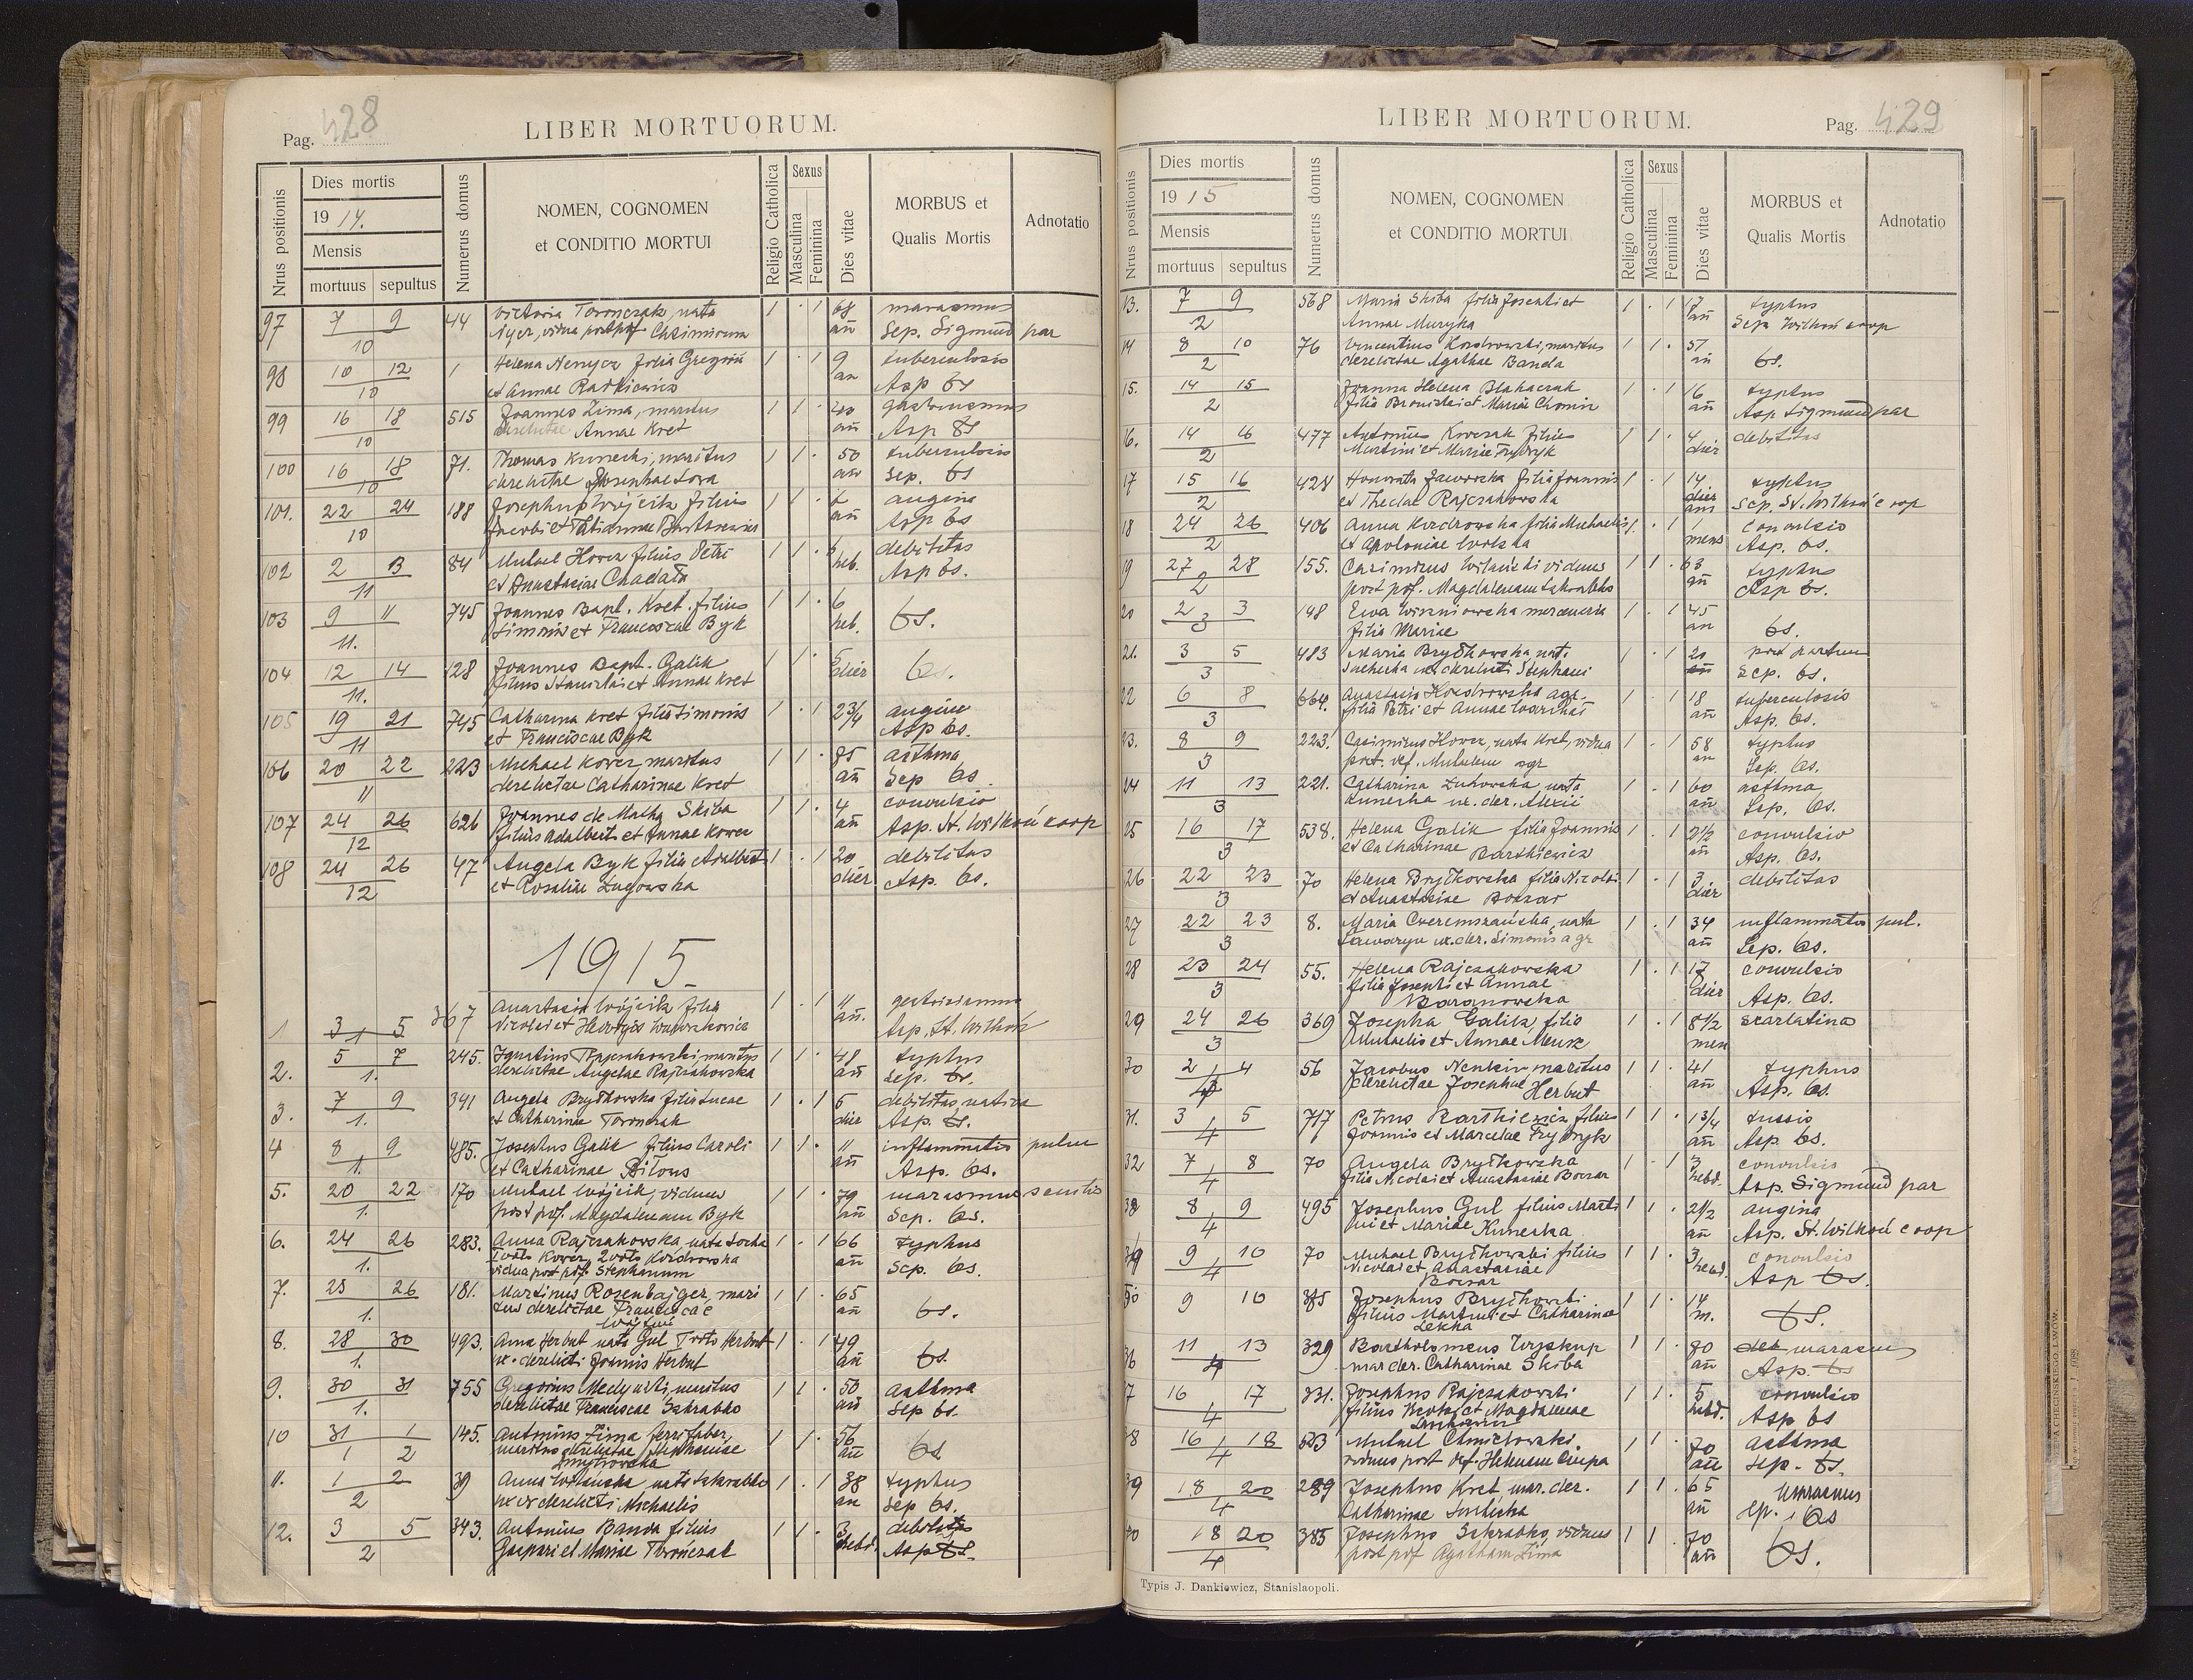 Pag. 428
LIBER MORTUORUM.
Nrus positionis
Dies mortis
1914.
Mensis
mortuus sepultus
Numerus domus
NOMEN, COGNOMEN
et CONDITIO MORTUI
Religio Catholica
Sexus
Masculina
Feminina
Dies vitae
MORBUS et
Qualis Mortis
Adnotatio
97 7 9 44 Victoria Torończak, nata 1 · 1 68 marasmus
10 vidua post pf Casimirum an Sep. Sigmund par
98 10 12 1 Helena Nemycz filia Gregorii 1 · 1 9 tuberculosis
10 et Annae Radkiewicz an Asp bs
99 16 18 515 Joannes Zima, maritus 1 1 · 40
10 derelictae Annae Kret an Asp bs
100 16 18 71. Thomas Kunecki, maritus 1 1 · 50 tuberculosis
10 derelictae Josephae an Sep. bs
101. 22 24 188 Josephus Wójcik filius 1 1 · angina
10 Jacobi et Tatiannae an Asp bs
102 2 3 84 Michael Hower filius Petri 1 1 · debilitas
11 et Anastasiae Chadata heb. Asp bs.
103 9 11 745 Joannes Bapt. Kret filius 1 1 · 6
11. Simonis et Franciscae Byk heb. bs.
104 12 14 128 Joannes Bapt. Galik 1 1 · 5
11. filius Stanislai et Annae Kret dier bs.
105 19 21 745 Catharina Kret filia Simonis 1 · 1 2 3/4 angina
11 et Franciscae Byk Asp bs.
106 20 22 223 Michael Kower maritus 1 1 · 85 asthma
11 derelictae Catharinae Kret an Sep bs
107 24 26 626 Joannes de Matha Skiba 1 1 · 4 convulsio
12 filius Adalberti et Annae Kower an Asp. St. Witkoń coop
108 24 26 47 Angela Byk filia Adalberti 1 · 1 20 debilitas
12 et Rosaliae Żugowska dier Asp. bs.
1915
1 3 5 367 Anastasia Wójcik filia 1 · 1 11
1 Nicolai et Hedvigis an. Asp. St. Witkoń
2. 5 7 245. Ignatius Rajczakowski maritus 1 1 · 48 typhus
1. derelictae Angelae Rajczakowska an Sep. bs.
3. 7 9 341 Angela Brytkowska filia Lucae 1 · 1 5 debilitas nativa
1. et Catharinae Torończak dier Asp. bs.
4 8 9 485. Josephus Galik filius Caroli 1 1 · 11 inflammatio pulm
1. et Catharinae Bilous an Asp. bs.
5. 20 22 170 Michael Wójcik, viduus 1 1 · 79 marasmus senilis
1. post pf. Magdalenam Byk an Sep. bs.
6. 24 26 283. Anna Rajczakowska nata Socha 1 · 1 66 typhus
1. 1voto Kower, 2voto Kozdrowska an Sep. bs.
vidua post pf. Stephanum
7. 25 26 181. Martinus Rosenbajger, mari 1 1 · 65
1. tus derelictae Franciscae an bs.
8. 28 30 493. Anna Herbut nata Gul 1voto Herbut 1 · 1 49
1. ux. derelicti Joannis Herbut an bs.
9. 30 31 755 Gregorius maritus 1 1 · 50 asthma
1. derelictae Franciscae Szkrabko an Sep bs.
10 31 1 145. Antonius Zima ferri faber, 1 1 · 56
1 2 maritus derelictae Stephaniae an bs
Dmytrowska
11. 1 2 39 Anna nata Szkrabko 1 · 1 38 typhus
2 uxor derelicti Michaelis an Sep bs.
12. 3 5 343. Antonius Banda filius 1 1 · 3 debilitas
2 Gaspari et Mariae Torończak hebd. Asp bs.
Pag. 429
LIBER MORTUORUM.
Nrus positionis
Dies mortis
1915
Mensis
mortuus sepultus
Numerus domus
NOMEN, COGNOMEN
et CONDITIO MORTUI
Religio Catholica
Sexus
Masculina
Feminina
Dies vitae
MORBUS et
Qualis Mortis
Adnotatio
13. 7 9 568 Maria Skiba filia Josephi et 1 · 1 17 typhus
2 Annae Muzyka an Sep Witkoń coop
14 8 10 76 Vincentius Kozdrowski, maritus 1 1 · 57
2 derelictae Agathae Banda an bs.
15. 14 15 Joanna Helena Blahaczak 1 · 1 16 typhus
2 filia Bronislai et Mariae an Asp Sigmund par
16. 14 16 477 Antonius Krvczak filius 1 1 · 4 debilitas
2 Martini et Mariae Frydryk dier
17 15 16 428 Honorata Jaworska filia Joannis 1 · 1 14 typhus
2 et Theclae Rajczakowska an Sep. St. Witkoń coop
18 24 26 406 Anna Kozdrowska filia Michaelis 1 · 1 1 convulsio
2 et Apoloniae Wolska mens Asp. bs.
19 27 28 155. Casimirus viduus 1 1 · 63 typhus
2 post pf. Magdalenam Szkrabko an Asp bs.
20 2 3 148 Ewa Wiszniowska mercenaria 1 · 1 45
3 filia Mariae an bs.
21. 3 5 483 Maria Brytkowska nat. 1 · 1 20 post partum
3 ux. derelicti Stephani an Sep. bs.
22 6 8 664. Anastasia Kozdrowska agr. 1 · 1 18 tuberculosis
3 filia Petri et Annae an Asp. bs.
23. 8 9 223. Casimirus Hower, nata Kret, vidua 1 · 1 58 typhus
3 post. def. Michaelem agr an Sep. bs.
24 11 13 221. Catharina Żukowska, nata 1 · 1 60 asthma
3 Kunecka ux. der. Alexii an Sep. bs.
25 16 17 538. Helena Galik filia Joannis 1 · 1 2 1/2 convulsio
3 et Catharinae Bartkiewicz an Asp. bs.
26 22 23 70 Helena Brytkowska filia Nicolai 1 · 1 3 debilitas
3 et Anastasiae Boczar dier
27 22 23 8. Maria Czeremszańska, nata 1 · 1 34 inflammatio pul.
3 ux. der. Simonis agr an Sep. bs.
28 23 24 55. Helena Rajczakowska 1 · 1 17 convulsio
3 filia Josephi et Annae dier Asp. bs.
Baranowska
29 24 26 369 Josepha Galik filia 1 · 1 8 1/2 scarlatina
3 Michaelis et Annae men
30 2 4 56 Jacobus maritus 1 1 · 41 typhus
4 derelictae Josephae Herbut an Asp. bs.
31. 3 5 717 Petrus Bartkiewicz filius 1 1 · 1 3/4 tussis
4 Joannis et Marcelae Frydryk an Asp bs.
32 7 8 70 Angela Brytkowska 1 · 1 3 convulsio
4 filia Nicolai et Anastasiae Boczar hebd. Asp. Sigmund par
33 8 9 495 Josephus Gul filius Marti 1 1 · 2 1/2 angina
4 ni et Mariae Kunecka an Asp. St. Witkoń coop
34 9 10 70 Michael Brytkowski filius 1 1 · 3 convulsio
4 Nicolai et Anastasiae hebd. Asp bs.
Boczar
9 10 385 Josephus Brytkowski 1 1 · 14
filius Martini et Catharinae m. bs.
36 11 13 329 Bartholomeus 1 1 · 80 marasmus
4 mar der. Catharinae Skiba an Asp. bs
7 16 17 331. Josephus Rajczakowski 1 1 · 5 convulsio
4 filius et Magdalenae hebd. Asp bs
38 16 18 523 Michael Chmielowski 1 1 · 70 asthma
4 viduus post def. Helenam an Sep. bs.
39 18 20 289 Josephus Kret mar. der. 1 1 · 65 marasmus
4 Catharinae an Sp. bs
40 18 20 385 Josephus Szkrabko, viduus 1 1 · 70
4 post pf Agatham Zima an bs.
Typis J. Dankiewicz, Stanislaopoli.